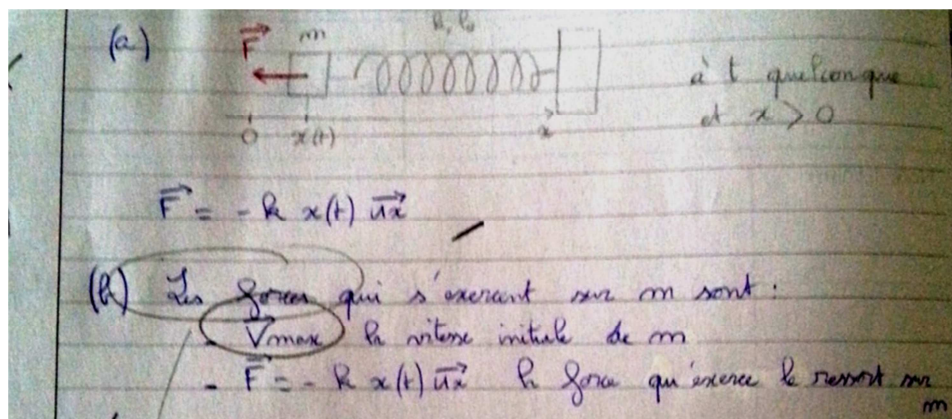 (a) F m k, l₀
à t quelconque
0 x(t) x et x > 0
F = - k x(t) ux
(b) Les forces qui s'exercent sur m sont :
- Vmax la vitesse initiale de m
- F = - k x(t) ux la force qu'exerce le ressort sur
m